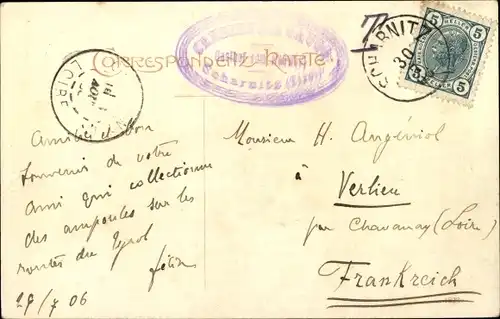 CORRESPONDENZ-KARTE
Gasthof zum
Scharnitz (Tirol)
T
SCHARNITZ
30
5 HELLER 5
5 HELLER 5
LOIRE
Amitié et bon
souvenir de votre
ami qui collectionne
des ampoules sur les
routes du Tyrol
29/7 06
Monsieur H. Angéniol
à
Verlieu
par Chavanay (Loire)
Frankreich